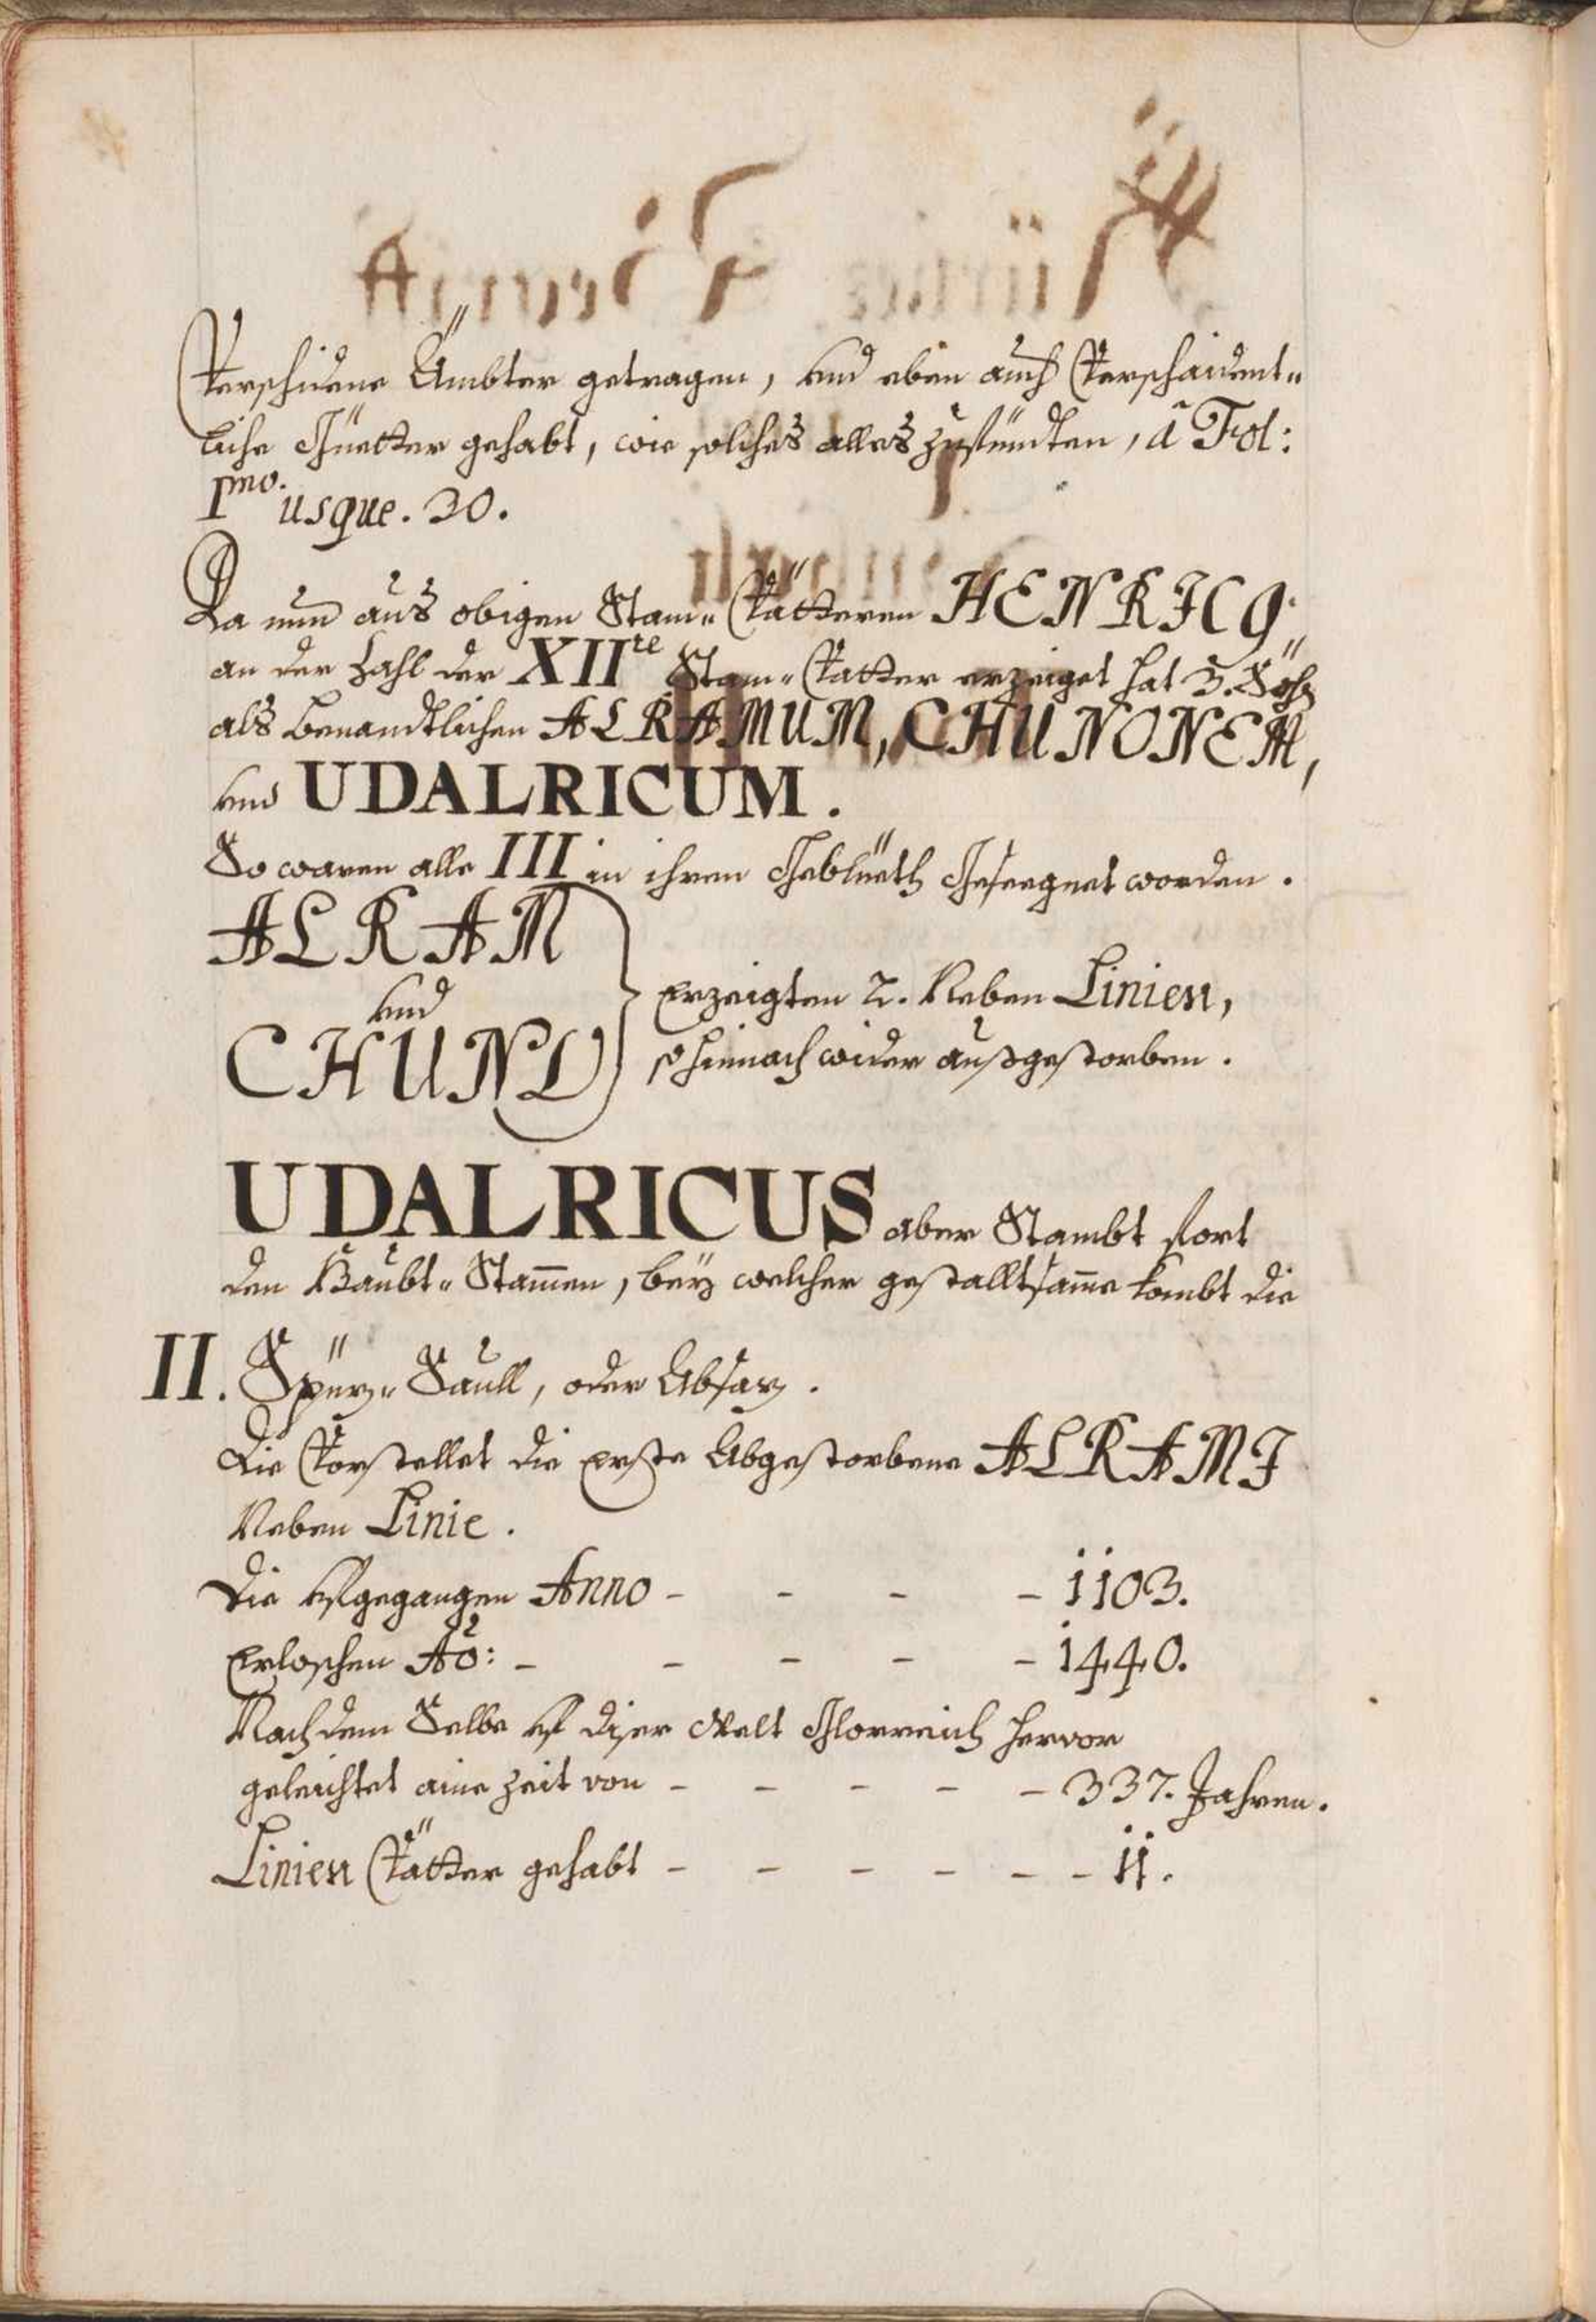 Verschidene Ämbter getragen, und eben auch Verschaident-
liche Güetter gehabt, wie solches alles zufündten, â Fol:
1mo. usque. 30.
Da nun aus obigen Stam- Vätteren HENRICO
an der Zahl der XIIte Stam- Vatter erzeiget hat 3. Söhn
als benandtlichen ALRAMUM, CHUNONEM,
und UDALRICUM.
So waren alle III in ihren Geblüeth Geseegnet worden.
ALRAM
und
CHUNO
Erzeigten 2. Neben Linien,
so hinnach wider außgestorben.
UDALRICUS aber Stambt fort
den Haubt- Stam̄en, beÿ welcher gestalltsam̄e kombt die
II. Spüz- Saull, oder Absaz.
Die Vorstellet die Erste Abgestorbene ALRAMI
Neben Linie.
Die Ufgegangen Anno - - - - 1103.
Erloschen Aō: - - - - - 1440.
Nachdem Selbe uf diser Welt Glorreich hervor
geleichtet aine Zeit von - - - - - 337. Jahren.
Linien Vätter gehabt - - - - - - 11.